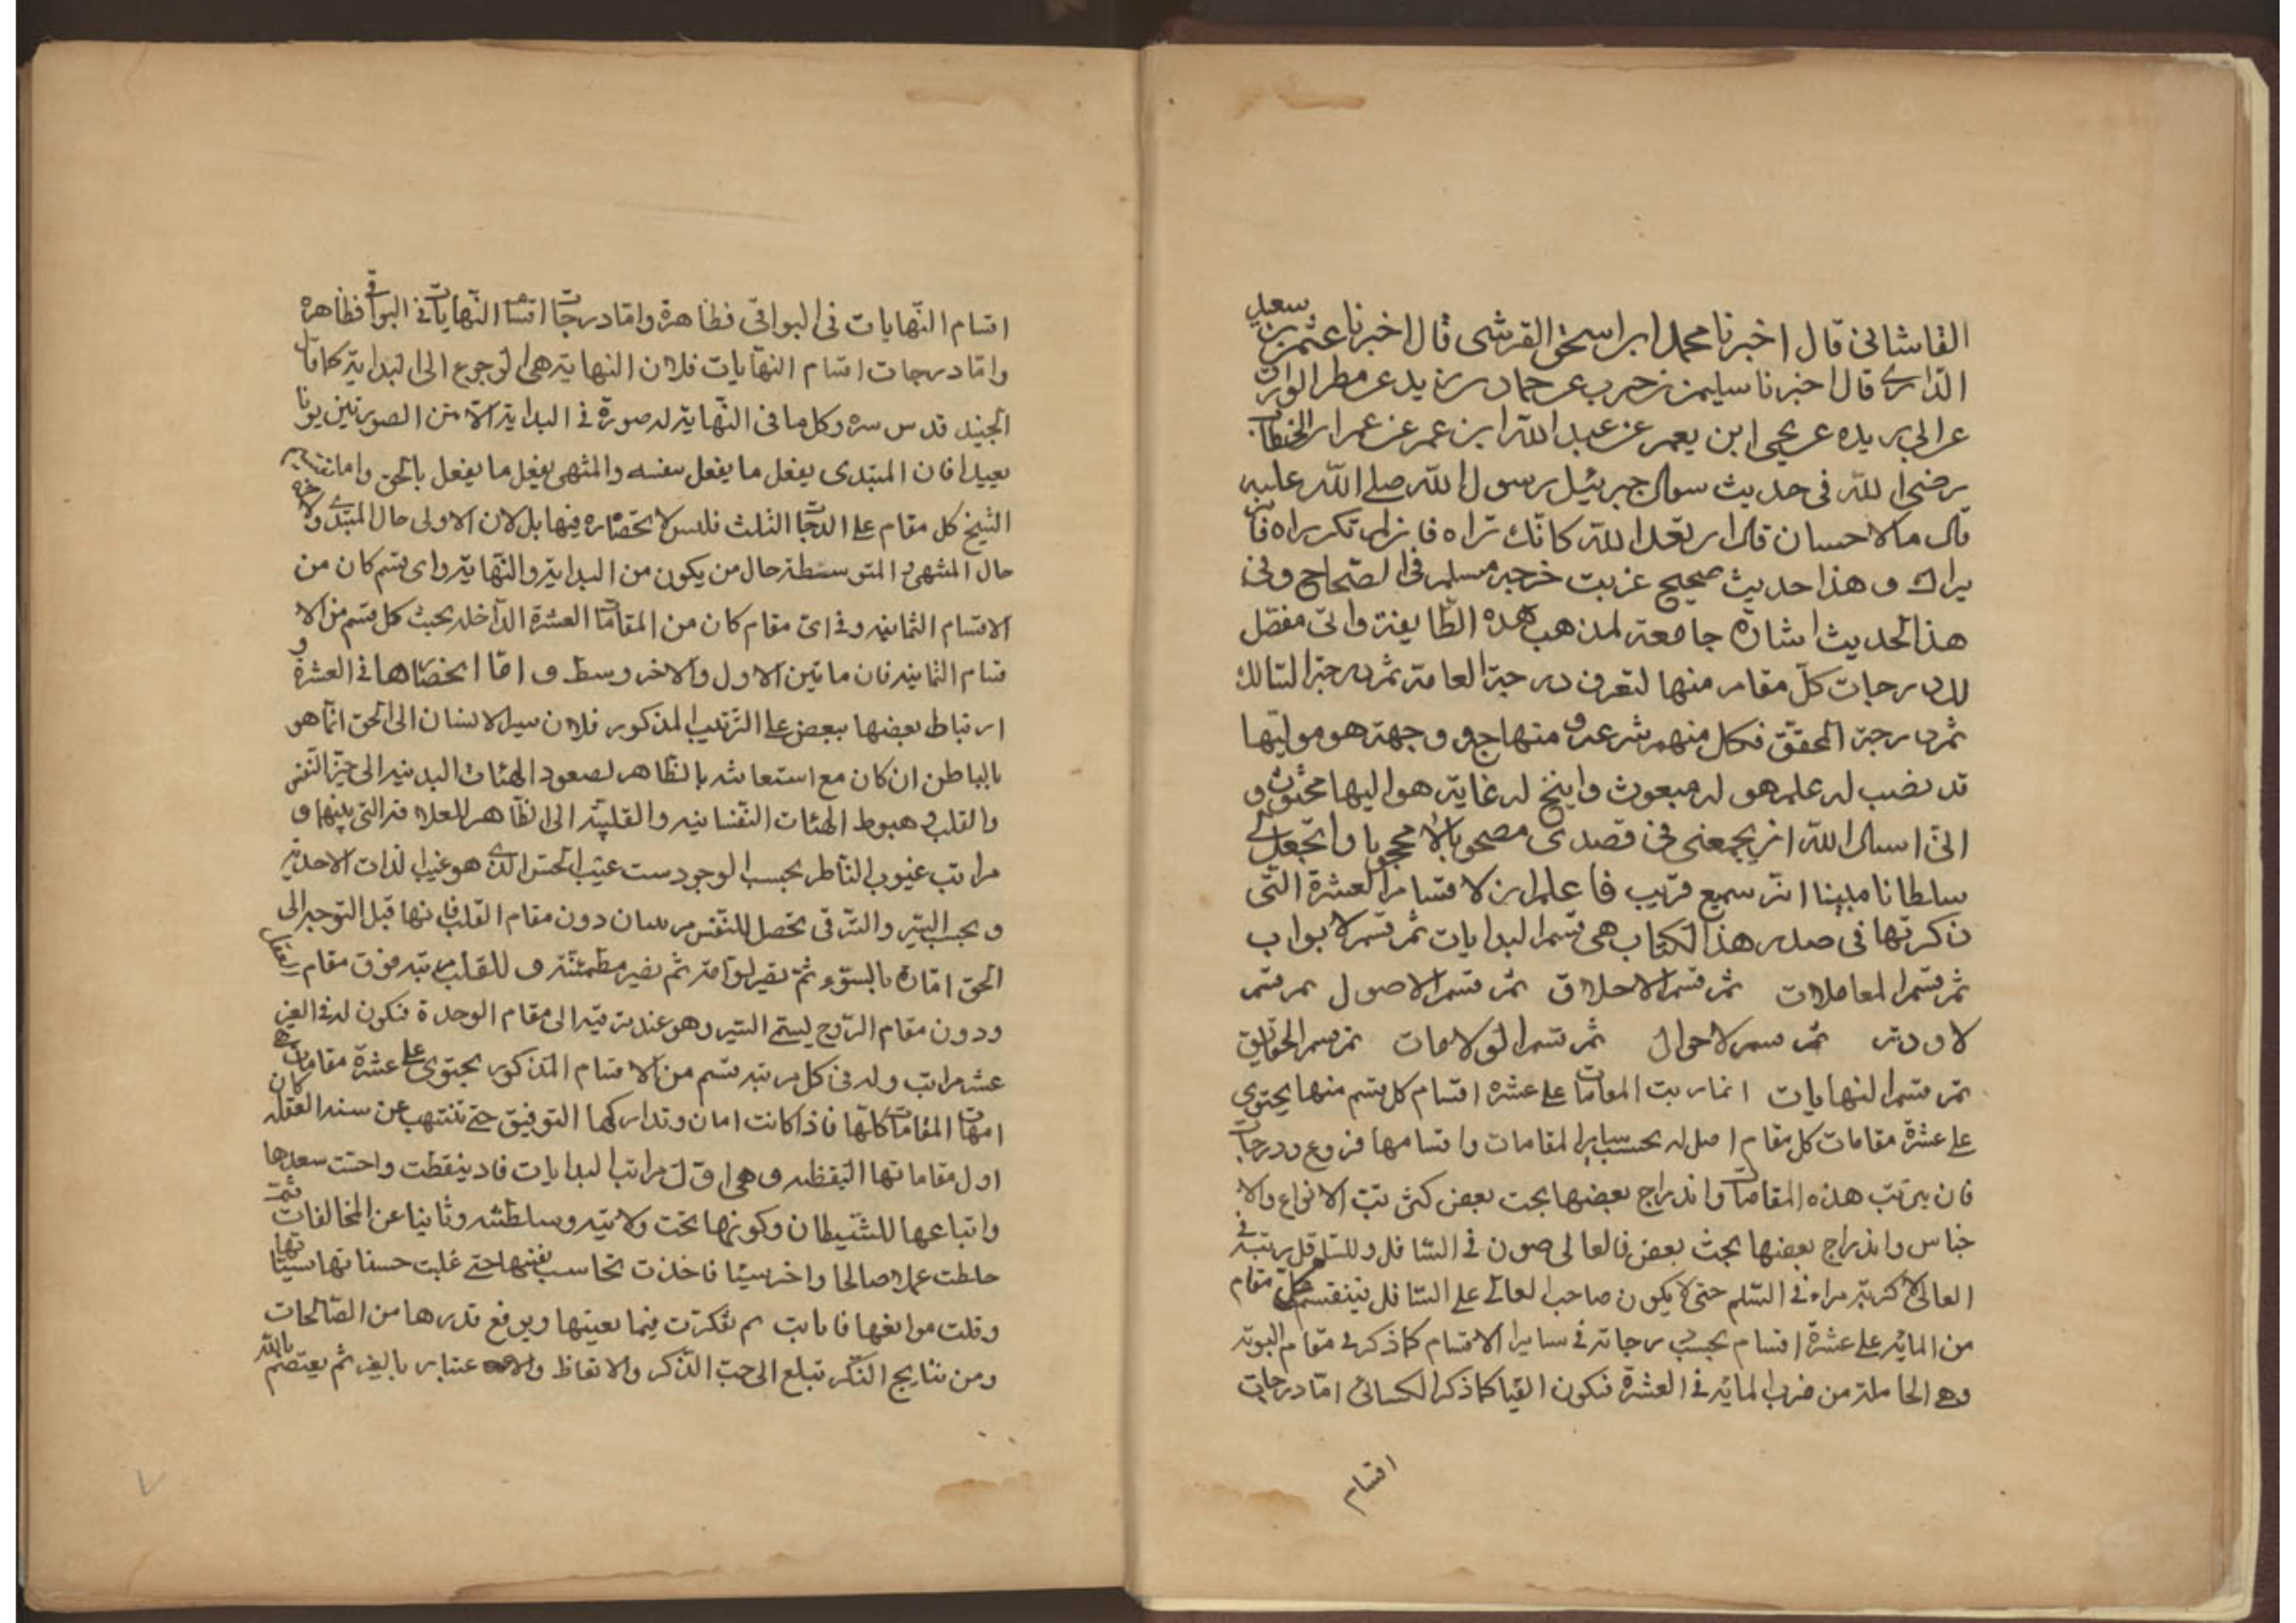 القاشانی قال اخبرنا محمد ابراسحق القرشی قال اخبرنا عثمن بن سعید
الدارے قال اخبرنا سلیمن بن حرب عن حماد بن زید عن مطر الوراق
عن ابی بریده عن یحیی ابن یعمر عن عبد الله ابن عمر عن عمر ابن الخطاب
رضی الله فی حدیث سوال جبرئیل رسول الله صلے الله علیه
قال ما الاحسان قال ان تعبد الله کانک تراه فان لم تکن تراه فانه
یراك و هذا حدیث صحیح غریب خرجه مسلم فی الصحاح و فی
هذا الحدیث اشارة جامعة لمذهب هذه الطایفة وانی مفصل
لك درجات کل مقام منها لتعرف درجة العامة ثم درجة السالك
ثم درجة المحقق فکل منهم شرعة و منهاج و وجهة هو مولیها
قد نصب له علم هو له مبعوث و اتیح له غایة هو الیها محثوث و
انی اسال الله ان یجمعنی فی قصدی مصحوبا لا محجوبا و ان یجعل لے
سلطانا مبینا انه سمیع قریب فاعلم ان الاقسام العشرة التی
ذکرتها فی صدر هذا الکتاب هی قسم البدایات ثم قسم الابواب
ثم قسم المعاملات ثم قسم الاخلاق ثم قسم الاصول ثم قسم
الاودیة ثم قسم الاحوال ثم قسم الولایات ثم قسم الحقایق
ثم قسم النهایات انما رتبت المقامات علے عشرة اقسام کل قسم منها یحتوی
علے عشرة مقامات کل مقام اصل له بحسب سایر المقامات و اقسامها فروع و درجات
فان ترتب هذه المقامات و اندراج بعضها تحت بعض کترتب الانواع والا
جناس و اندراج بعضها تحت بعض فالعالی صورة فی السافل و للسافل رتبة فے
العالی لا کترتب مراتب السلم حتی لا یکون صاحب العالے علے السافل فینقسم کل مقام
من المائة علے عشرة اقسام بحسب درجاته فے سایر الاقسام کما ذکر فے مقام التوبة
وهے الحاصلة من ضرب المائة فے العشرة فیکون الفا کما ذکر الکسائی اما درجات
اقسام
اقسام النهایات فی البواقی فظاهرة و اما درجات اقسام النهایات فے البواقی فظاهرة
و اما درجات اقسام النهایات فلان النهایة هی الرجوع الی البدایة کما قال
الجنید قدس سره و کل ما فی النهایة له صورة فے البدایة الا ان بین الصورتین بونا
بعیدا فان المبتدی یفعل ما یفعل بنفسه و المنتهی یفعل ما یفعل بالحق و اما تقسیم
الشیخ کل مقام علے الدرجات الثلث فلیس لانحصاره فیها بل لان الاولی حال المبتدے والاخرة
حال المنتهی و المتوسطة حال من یکون بین البدایة و النهایة و ای قسم کان من
الاقسام الثمانیة و فے ای مقام کان من المقامات العشرة الداخلة تحت کل قسم من الا
قسام الثمانیة فان ما بین الاول والاخر وسط و اما انحصارها فے العشرة و
ارتباط بعضها ببعض علے الترتیب المذکور فلان سیر الانسان الی الحق انما هو
بالباطن ان کان مع استعانته بالظاهر لصعود الهئات البدنیة الی حیز النفس
والقلب و هبوط الهئات النفسانیة و القلبیة الی الظاهر للعلاقة التی بینهما و
مراتب غیوب الناظر بحسب الوجود ست غیب الجنس الذے هو غیب الذات الاحدیة
و بحسب السیر و الترقی تحصل للنفس مرتبتان دون مقام القلب فانها قبل التوجه الی
الحق امارة بالسوء ثم تصیر لوامة ثم تصیر مطمئنة و للقلب مرتبة فوق مقام العقل
و دون مقام الروح لیستم السیر و هو عند ترقیه الی مقام الوحدة فتکون له فے الغیر
عشر مراتب وله فی کل مرتبة قسم من الاقسام المذکور یحتوی علے عشرة مقامات هے
امهات المقامات کلها فاذا کانت امارة و تدارکها التوفیق حتے تنتبهت عن سنة الغفلة کان
اول مقاماتها الیقظة و هی اول مراتب البدایات فاذ تیقظت و احست ببعدها
و اتباعها للشیطان و کونها تحت ولایته و سلطنته و تابت عن المخالفات ثمت
خلطت عملا صالحا و اخر سیئا فاخذت تحاسب نفسها حتے غلبت حسناتها سیئاتها
و قلت موانعها فانابت ثم تفکرت فیما یعینها و یرفع قدرها من الصالحات
و من نتایج الفکر تبلغ الی حب الذکر و الاتعاظ و الاعتبار بالغیر ثم یعتصم بالله